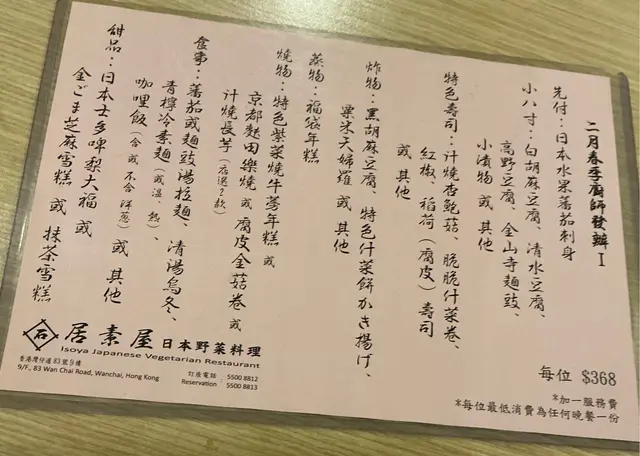 二月春季廚師發辦 I
先付：日本水果蕃茄刺身
小八寸：白胡麻豆腐、清水豆腐、
高野豆腐、金山寺麵豉、
小漬物 或 其他
特色壽司：汁燒杏鮑菇、脆脆什菜卷、
紅椒、稻荷（腐皮）壽司
或 其他
炸物：黑胡麻豆腐、特色什菜餅かき揚げ、
粟米天婦羅 或 其他
蒸物：福袋年糕
燒物：特色紫菜燒牛蒡年糕 或
京都麩田樂燒 或 腐皮金菇卷 或
汁燒長芋（店選2款）
食事：蕃茄或麵豉湯拉麵、清湯烏冬、
青檸冷素麵（或溫、熱）、
咖哩飯（含 或 不含 洋蔥）或 其他
甜品：日本士多啤梨大福 或
金ごま芝麻雪糕 或 抹茶雪糕
每位 $368
*加一服務費
*每位最低消費為任何晚餐一份
石
居素屋 日本野菜料理
Isoya Japanese Vegetarian Restaurant
香港灣仔道83號9樓
9/F., 83 Wan Chai Road, Wanchai, Hong Kong
訂座電話： 5500 8812
Reservation： 5500 8813